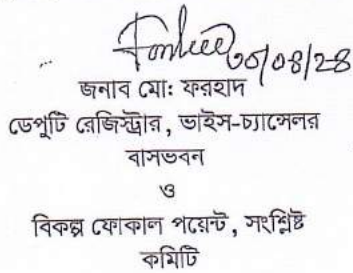 ৩০/০৪/২৪
জনাব মো: ফরহাদ
ডেপুটি রেজিস্ট্রার, ভাইস-চ্যান্সেলর
বাসভবন
ও
বিকল্প ফোকাল পয়েন্ট, সংশ্লিষ্ট
কমিটি